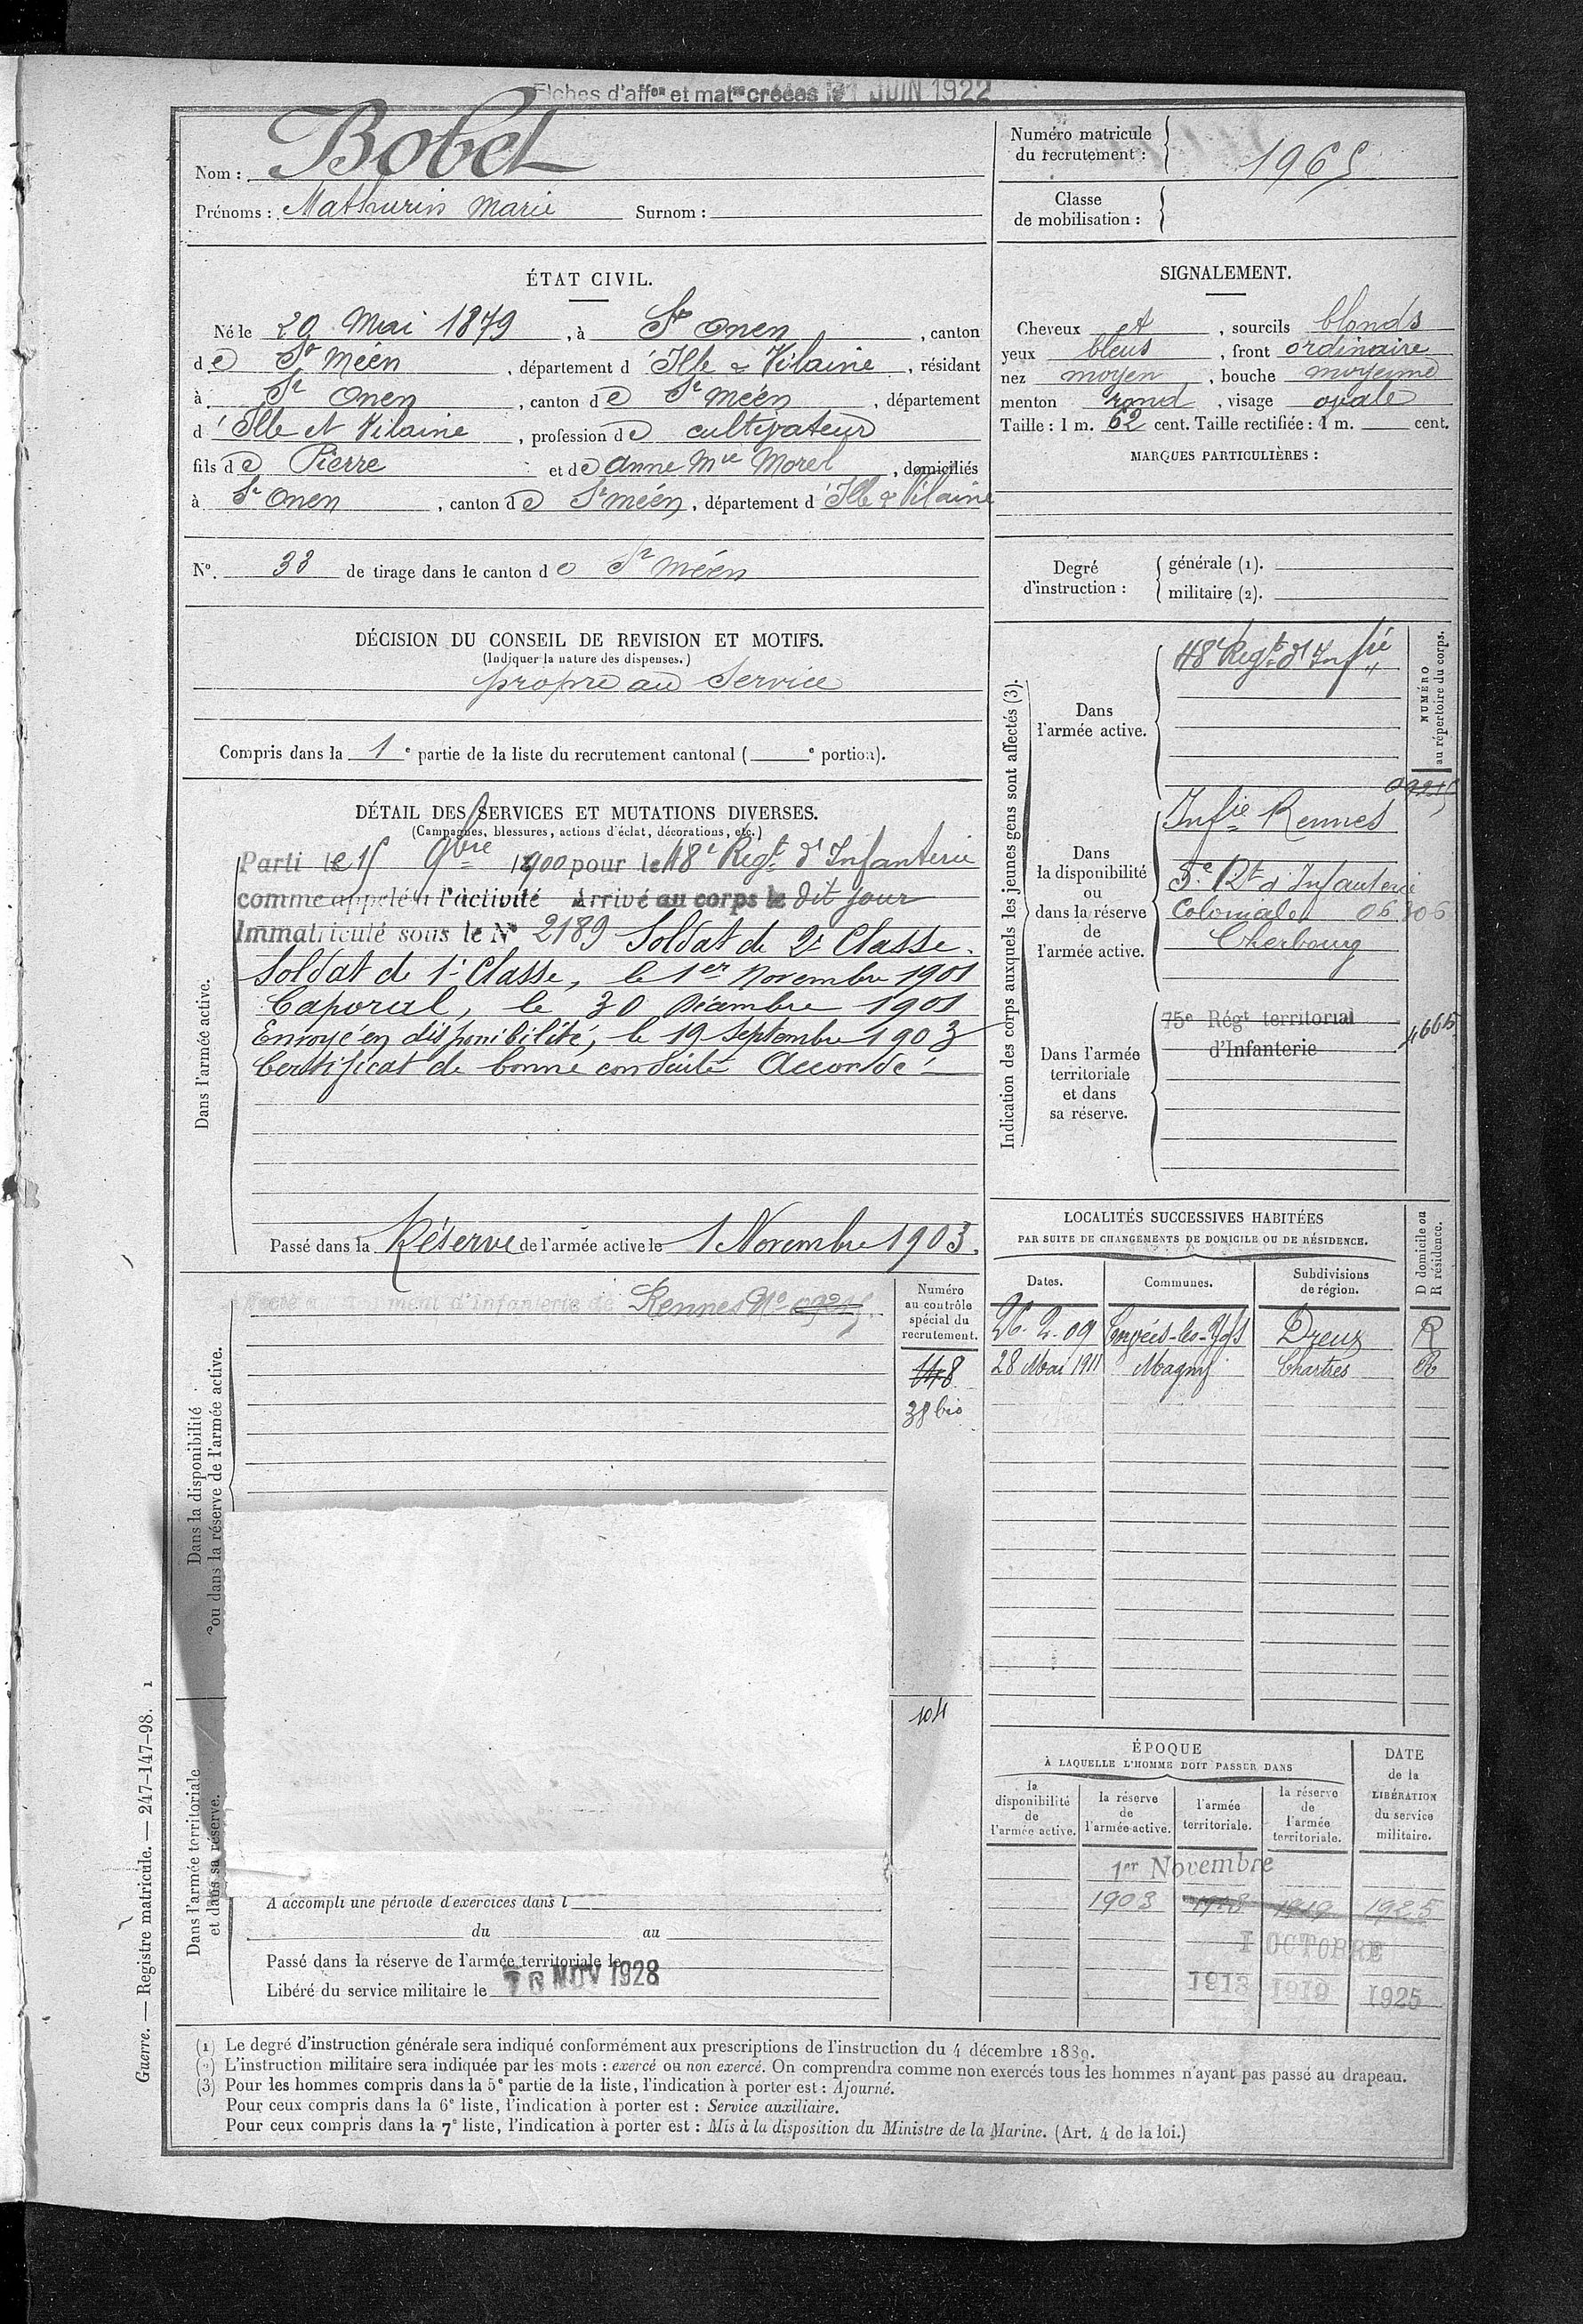 Fiches d'affon et matres créées le 1 JUIN 1922
Nom : Bobet
Prénoms : Mathurin Marie Surnom :
Numéro matricule du recrutement : 1965
Classe de mobilisation :
ÉTAT CIVIL.
Né le 29 Mai 1879, à St Onen, canton
de St Méen, département d'Ille & Vilaine, résidant
à St Onen, canton de St Méen, département
d'Ille et Vilaine, profession de cultivateur
fils de Pierre et de Anne Mie Morel, domiciliés
à St Onen, canton de St Méen, département d'Ille & Vilaine
N°. 33 de tirage dans le canton de St Méen
SIGNALEMENT.
Cheveux et, sourcils blonds
yeux bleus, front ordinaire
nez moyen, bouche moyenne
menton rond, visage ovale
Taille : 1 m. 62 cent. Taille rectifiée : 1 m. cent.
MARQUES PARTICULIÈRES :
Degré d'instruction :
générale (1).
militaire (2).
DÉCISION DU CONSEIL DE REVISION ET MOTIFS.
(Indiquer la nature des dispenses.)
propre au Service
Compris dans la 1e partie de la liste du recrutement cantonal ( e portion).
DÉTAIL DES SERVICES ET MUTATIONS DIVERSES.
(Campagnes, blessures, actions d'éclat, décorations, etc.)
Dans l'armée active.
Parti le 15 9bre 1900 pour le 48e Regt d'Infanterie
comme appelé à l'activité Arrivé au corps le dit jour
Immatriculé sous le N° 2189 Soldat de 2e Classe.
Soldat de 1e Classe, le 1er Novembre 1901
Caporal, le 30 Décembre 1901
Envoyé en disponibilité, le 19 Septembre 1903
Certificat de bonne conduite Accordé
Passé dans la Réserve de l'armée active le 1 Novembre 1903.
Indication des corps auxquels les jeunes gens sont affectés (3).
NUMÉRO au répertoire du corps.
Dans l'armée active.
48e Regt d'Infie
Dans la disponibilité ou dans la réserve de l'armée active.
09215
Infie Rennes
5e Rt d'Infanterie
Coloniale 06306
Cherbourg
Dans l'armée territoriale et dans sa réserve.
75e Régt territorial
d'Infanterie
4665
LOCALITÉS SUCCESSIVES HABITÉES
PAR SUITE DE CHANGEMENTS DE DOMICILE OU DE RÉSIDENCE.
Dates. Communes. Subdivisions de région. D domicile ou R résidence.
26.2.09 Dreux R
28 Mai 1911 Magny Chartres R
Dans la disponibilité ou dans la réserve de l'armée active.
d'Infanterie de Rennes No 09215
Numéro au contrôle spécial du recrutement.
148
38 bis
104
Dans l'armée territoriale et dans sa réserve.
A accompli une période d'exercices dans l
du au
Passé dans la réserve de l'armée territoriale le
Libéré du service militaire le 10 NOV 1928
ÉPOQUE
À LAQUELLE L'HOMME DOIT PASSER DANS
la disponibilité de l'armée active.
la réserve de l'armée active.
l'armée territoriale.
la réserve de l'armée territoriale.
DATE de la LIBÉRATION du service militaire.
1er Novembre
1903 1913 1919 1925
1 OCTOBRE
1913 1919 1925
(1) Le degré d'instruction générale sera indiqué conformément aux prescriptions de l'instruction du 4 décembre 1889.
(2) L'instruction militaire sera indiquée par les mots : exercé ou non exercé. On comprendra comme non exercés tous les hommes n'ayant pas passé au drapeau.
(3) Pour les hommes compris dans la 5e partie de la liste, l'indication à porter est : Ajourné.
Pour ceux compris dans la 6e liste, l'indication à porter est : Service auxiliaire.
Pour ceux compris dans la 7e liste, l'indication à porter est : Mis à la disposition du Ministre de la Marine. (Art. 4 de la loi.)
Guerre. — Registre matricule. — 247-147-98. 1